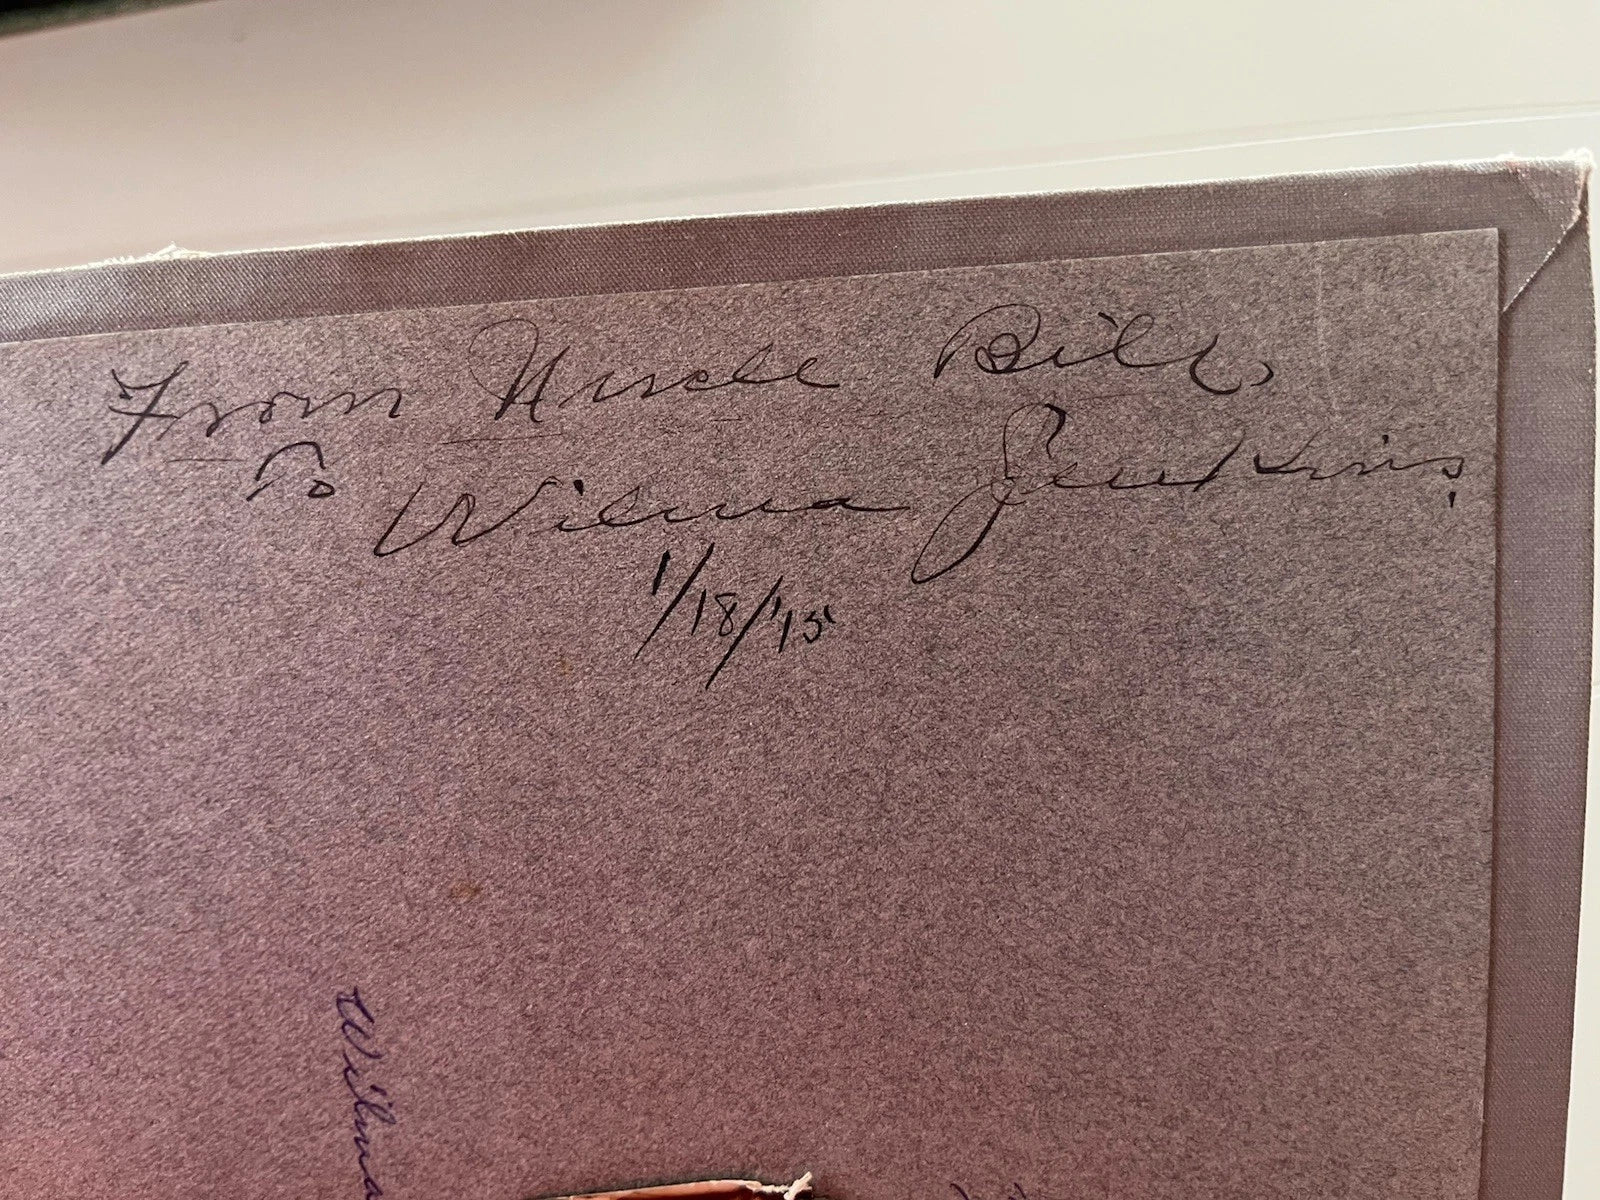 From Uncle Bill,
To Wilma Jenkins,
1/18/'15
Wilma